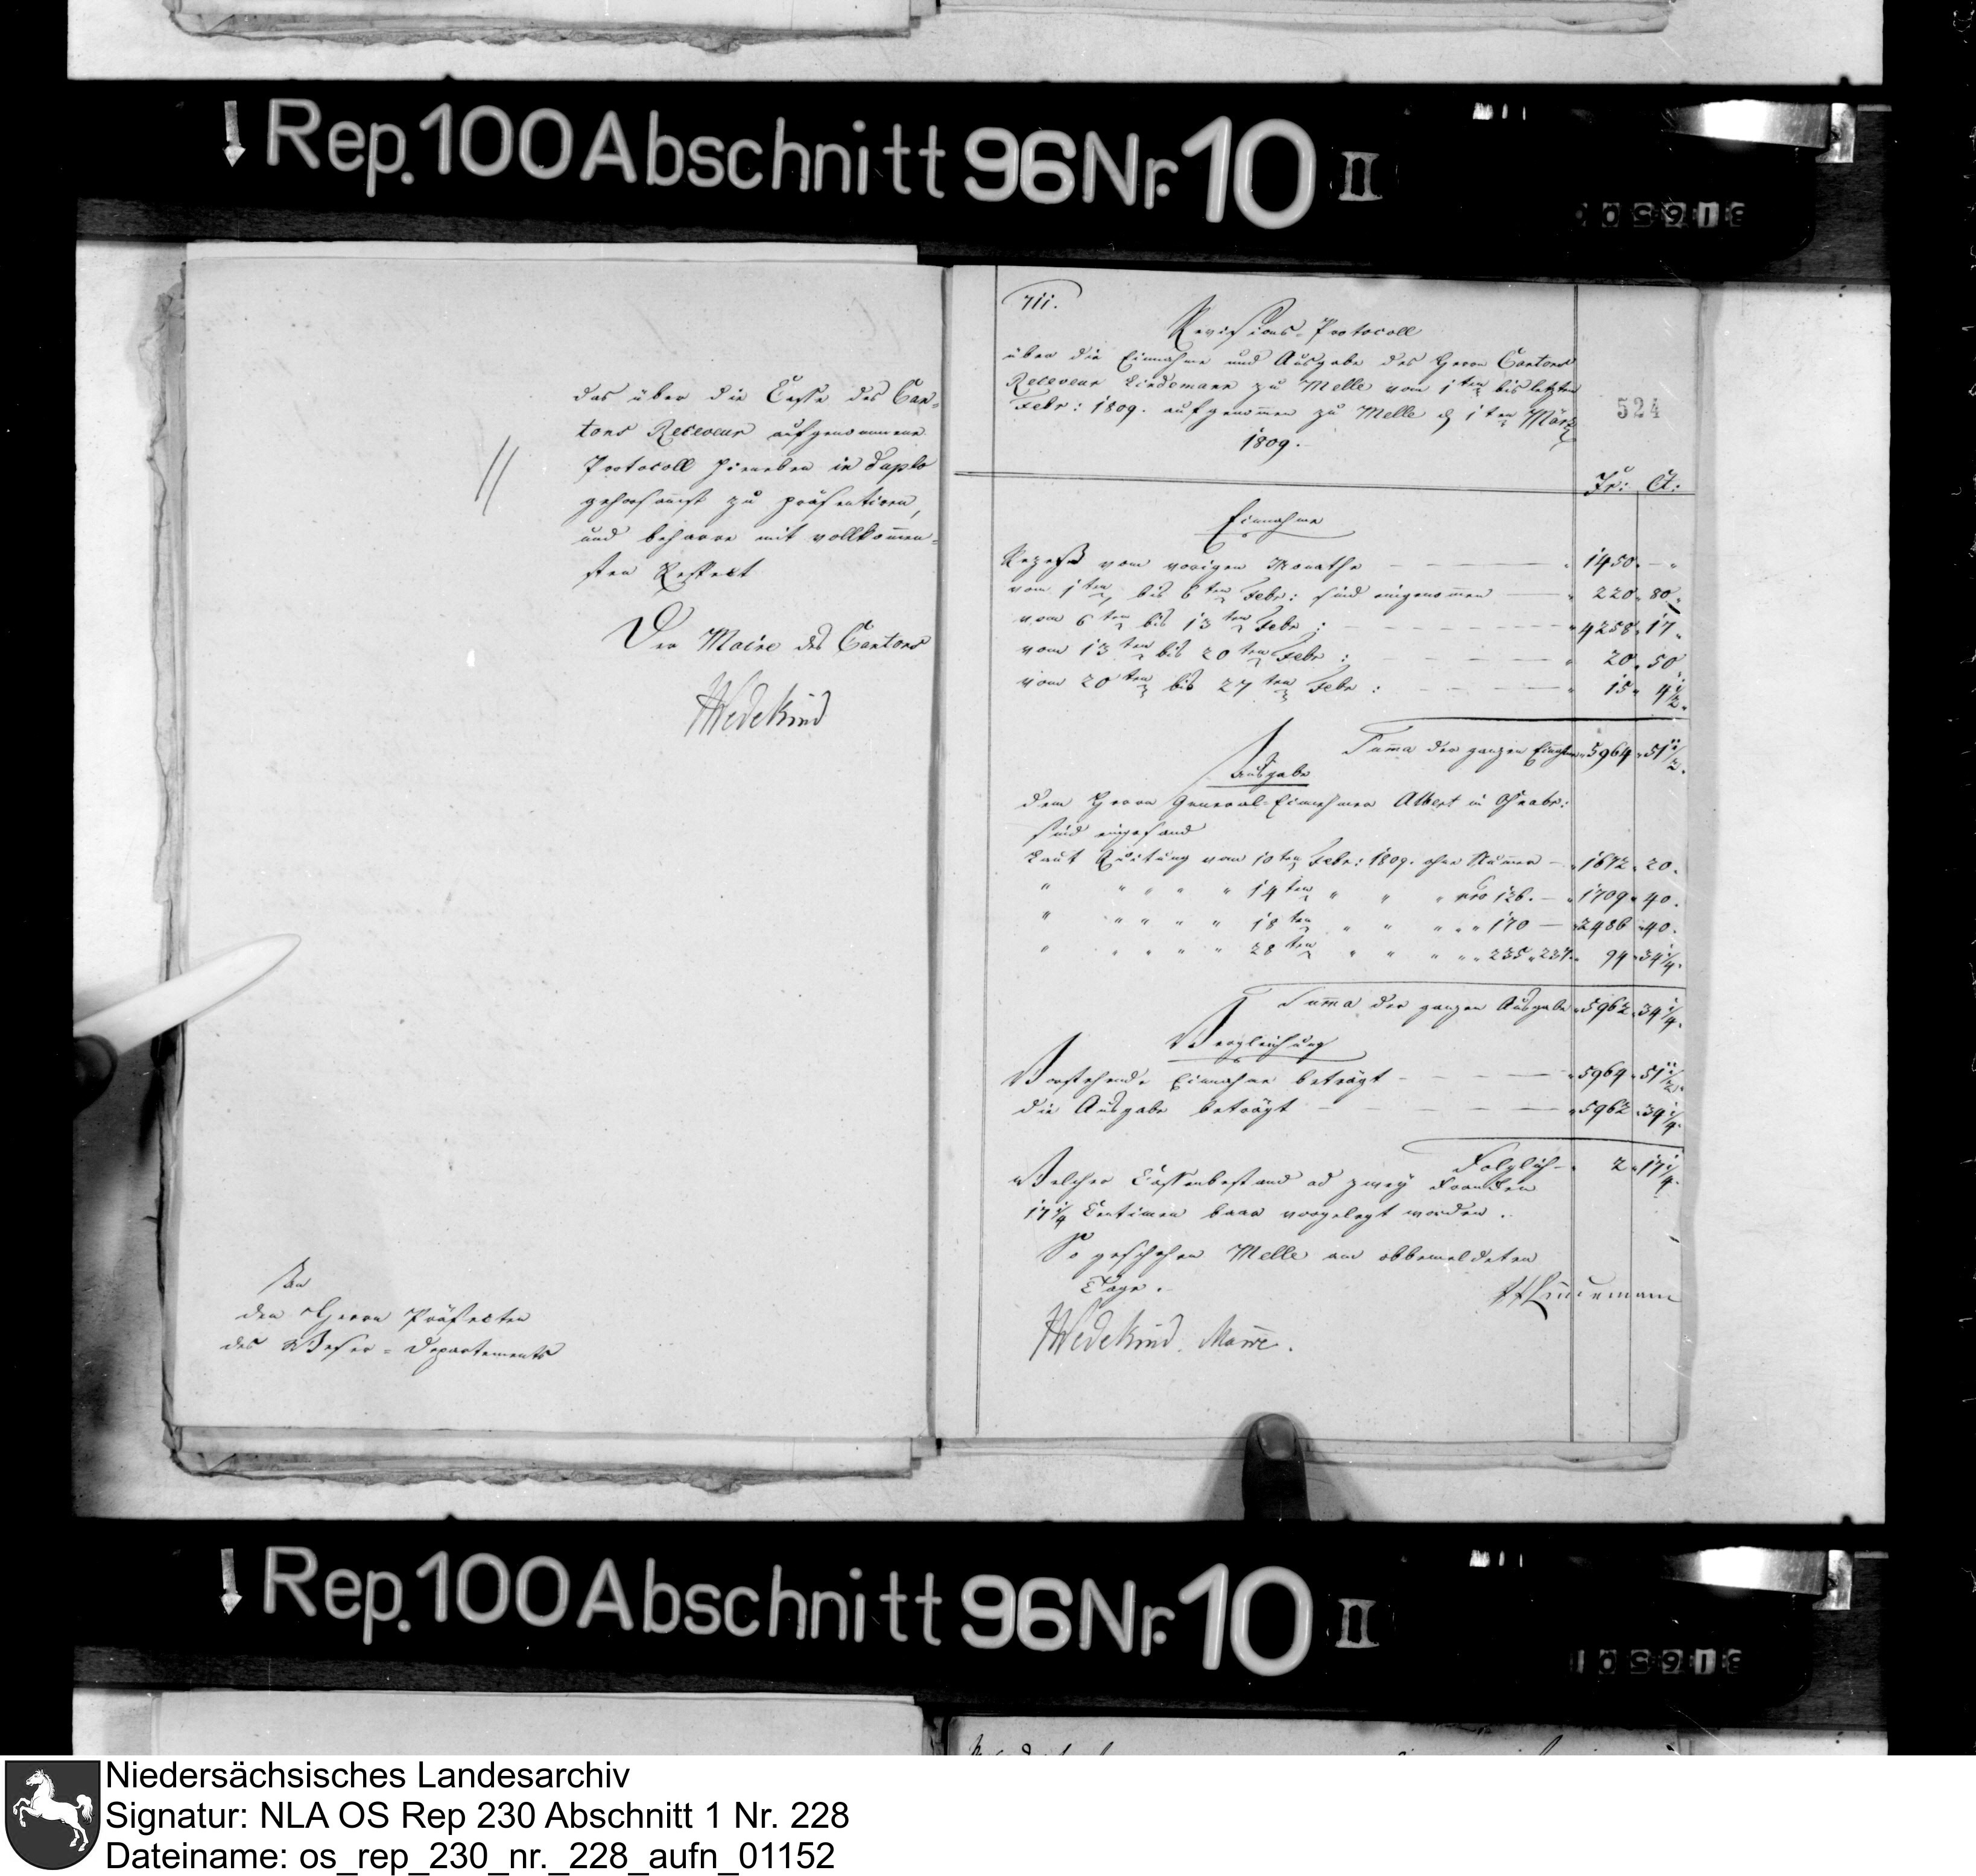 Rep. 100 Abschnitt 96 Nr. 10 II
das über die Casse des Can-
tons Receveur aufgenommene
Protocoll hieneben in duplo
gehorsamst zu präsentiren,
und beharre mit vollkommen-
sten Respekt
Der Maire des Cantons
Wedekind
An
den Herrn Präfecten
des Weser-Departements
524
Revisions-Protocoll
über die Einnahme und Ausgabe des Herrn Cantons
Receveur Lindemann zu Melle vom 1ten bis letzten
Febr: 1809. aufgenommen zu Melle d 1ten März
1809.
Fr: Ct:
Einnahme
Rezeß vom vorigen Monathe 1450. -
vom 1ten bis 6ten Febr: sind eingenommen 220. 80.
vom 6ten bis 13ten Febr: 4258. 17.
vom 13ten bis 20ten Febr: 20. 50
vom 20ten bis 27ten Febr: 15. 4 1/2.
Summa der ganzen Einnahme 5964. 51 1/2.
Ausgabe
dem Herrn General-Einnehmer Albert in Osnabr:
sind eingesand
Laut Quitung vom 10ten Febr: 1809. ohne Nummer 1672. 20.
" " " " " 14ten " " " nro 126. 1709. 40.
" " " " " 18ten " " " " " 170 2486. 40.
" " " " " 28ten " " " " " 235. 237. 94. 34 1/4.
Summa der ganzen Ausgabe 5962. 34 1/4.
Vergleichung
Vorstehende Einnahme beträgt 5964. 51 1/2.
die Ausgabe beträgt 5962. 34 1/4.
Folglich 2. 17 1/4.
Welcher Cassenbestand ad zwey Franken
17 1/4 Centimen baar vorgelegt worden.
So geschehen Melle am obbemeldeten
Tage.
Lindemann
Wedekind. Maire.
Rep. 100 Abschnitt 96 Nr. 10 II
Niedersächsisches Landesarchiv
Signatur: NLA OS Rep 230 Abschnitt 1 Nr. 228
Dateiname: os_rep_230_nr._228_aufn_01152